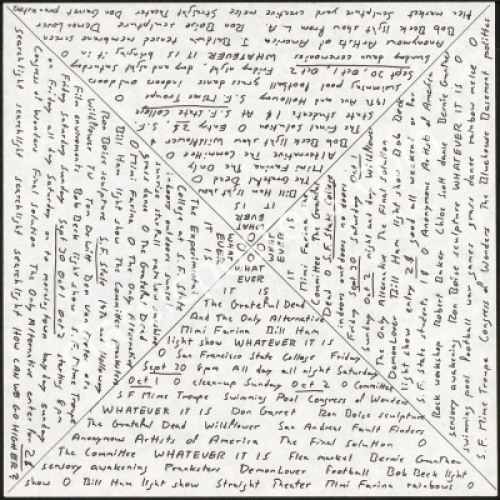 WHAT
EVER
IT IS
The Grateful Dead
And The Only Alternative
Mimi Farina Bill Ham
light show WHATEVER IT IS
O San Francisco State College Friday
Sept 30 8pm All day all night Saturday
Oct 1 O clean-up Sunday Oct 2 O Committee
S F Mime Troupe Swimming Pool Congress of Wonders
WHATEVER IT IS Don Garret Ron Boise sculpture
The Grateful Dead Willflower San Andreas Fault Finders
Anonymous Artists of America The Final Solution O
The Committee WHATEVER IT IS Flea market Bernie Gunthan
sensory awakening Pranksters DemonLover football Bob Beck light
show O Bill Ham light show Straight Theater Mimi Farina rainbows O
WHAT
EVER
IT IS
The Experimental
College at S.F. State
grass dance The Grateful Dead
O Mimi Farina O The Only Alternative
Bill Ham light show The Committee Pranksters
Ron Boise sculpture S.F. State 19th and Holloway
Film enviroments Bob Beck light show S.F. Mime Troupe
Friday Saturday Sunday Sept 30 Oct 1 Oct 2 starting 8pm
Congress of Wonders Final Solution O The Only Alternative enter for 2$
searchlight searchlight searchlight searchlight How CAN WE GO HIGHER?
WHAT
EVER
IT IS
Bill Ham light show
The Grateful Dead O
Mimi Farina The Only
Alternative O The Committee
Bob Beck light show Willflower
The Final Solution O entry 2$ S.F.
State students 1$ at S.F. State College
19th Ave and Holloway S.F. Mime Troupe
swimming pool football grass dance indoors and outdoors
Sept 30 Oct 1s Oct 2 Friday night, day and night Saturday
Sunday dawn ceremonies WHATEVER IT IS bringing it in O
Anonymous Artists of America
Bob Beck light show from L.A. Ron Boise sculpture DemonLover
WHAT
EVER
IT IS
Mimi Farina
Committee The Grateful
Dead O S.F. State College
indoors outdoors no doors
Friday Sept 30 Saturday Oct 1
Sunday Oct 2 night out by Willflower
The Only Alternative The Final Solution
DemonLover Bill Ham light show Bob Beck
light show entry 2$ good all weekend or for
S.F. State students 1$ O Anonymous Artists of America
Rock workshop Robert Baker Chloe Scott dance Bernie Gunther
sensory awakening Ron Boise sculpture WHATEVER IT IS O
swimming pool football war games grass dance rainbow melee O
S.F. Mime Troupe Congress of Wonders The Bluehouse Basement politics